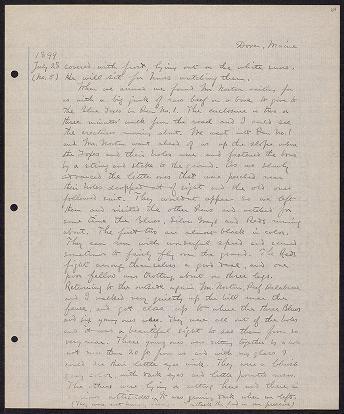 Dover, Maine
1899
July 28 covered with frost, lying out on the white snow.
(No. 5) He will sit for hours watching them.
When we arrived we found Mr. Norton waiting for
us with a big junk of raw beef on a hook to give to
the Blue Foxes in Pen No. 1. The enclosure is two or
three minutes' walk from the road and I could see
the creatures running about. We went into Pen No. 1
and Mr. Norton went ahead of us up the slope where
the Foxes and their holes were and fastened the bone
by a string and stake to the ground. As we slowly
advanced the little ones that were perched near
their holes dropped out of sight and the old ones
followed suit. They wouldn't appear so we left
them and visited the other Pens and watched for
some time the Blues, Silver Grays and Reds running
about. The first two are almost black in color.
They can run with wonderful speed and seemed
sometimes to fairly fly over the ground. The Reds
fight among themselves a good deal, and one
poor fellow was trotting about on three legs.
Returning to the outside again Mr. Norton, Prof.
and I walked very quietly up the hill near the
fence and got close up to where the three Blues
and six young ones were. They were all out of the holes
and it was a beautiful sight to see them from so
very near. Three young ones were sitting together by a hole
not more than 20 ft. from us and with my glass I
could see their little eyes wink. They were a bluish
gray color with dark eyes and little pointed ears.
The others were lying or sitting here and there in
various attitudes. It was growing dark when we left.
(They was not